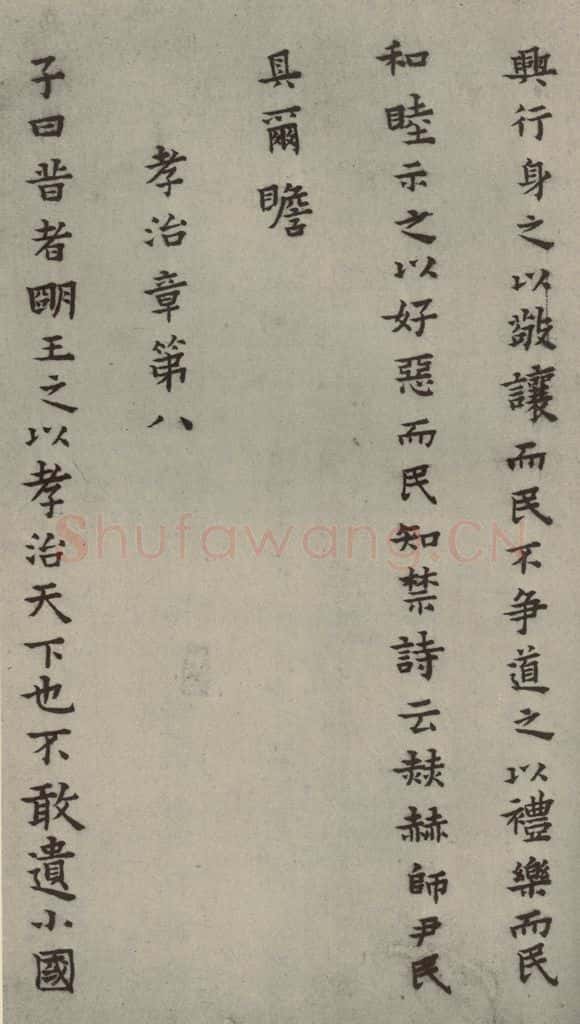 興行身之以敬讓而民不争道之以禮樂而民
和睦示之以好惡而民知禁詩云赫赫師尹民
具爾瞻
孝治章第八
子曰昔者朙王之以孝治天下也不敢遺小國
Shufawang.CN